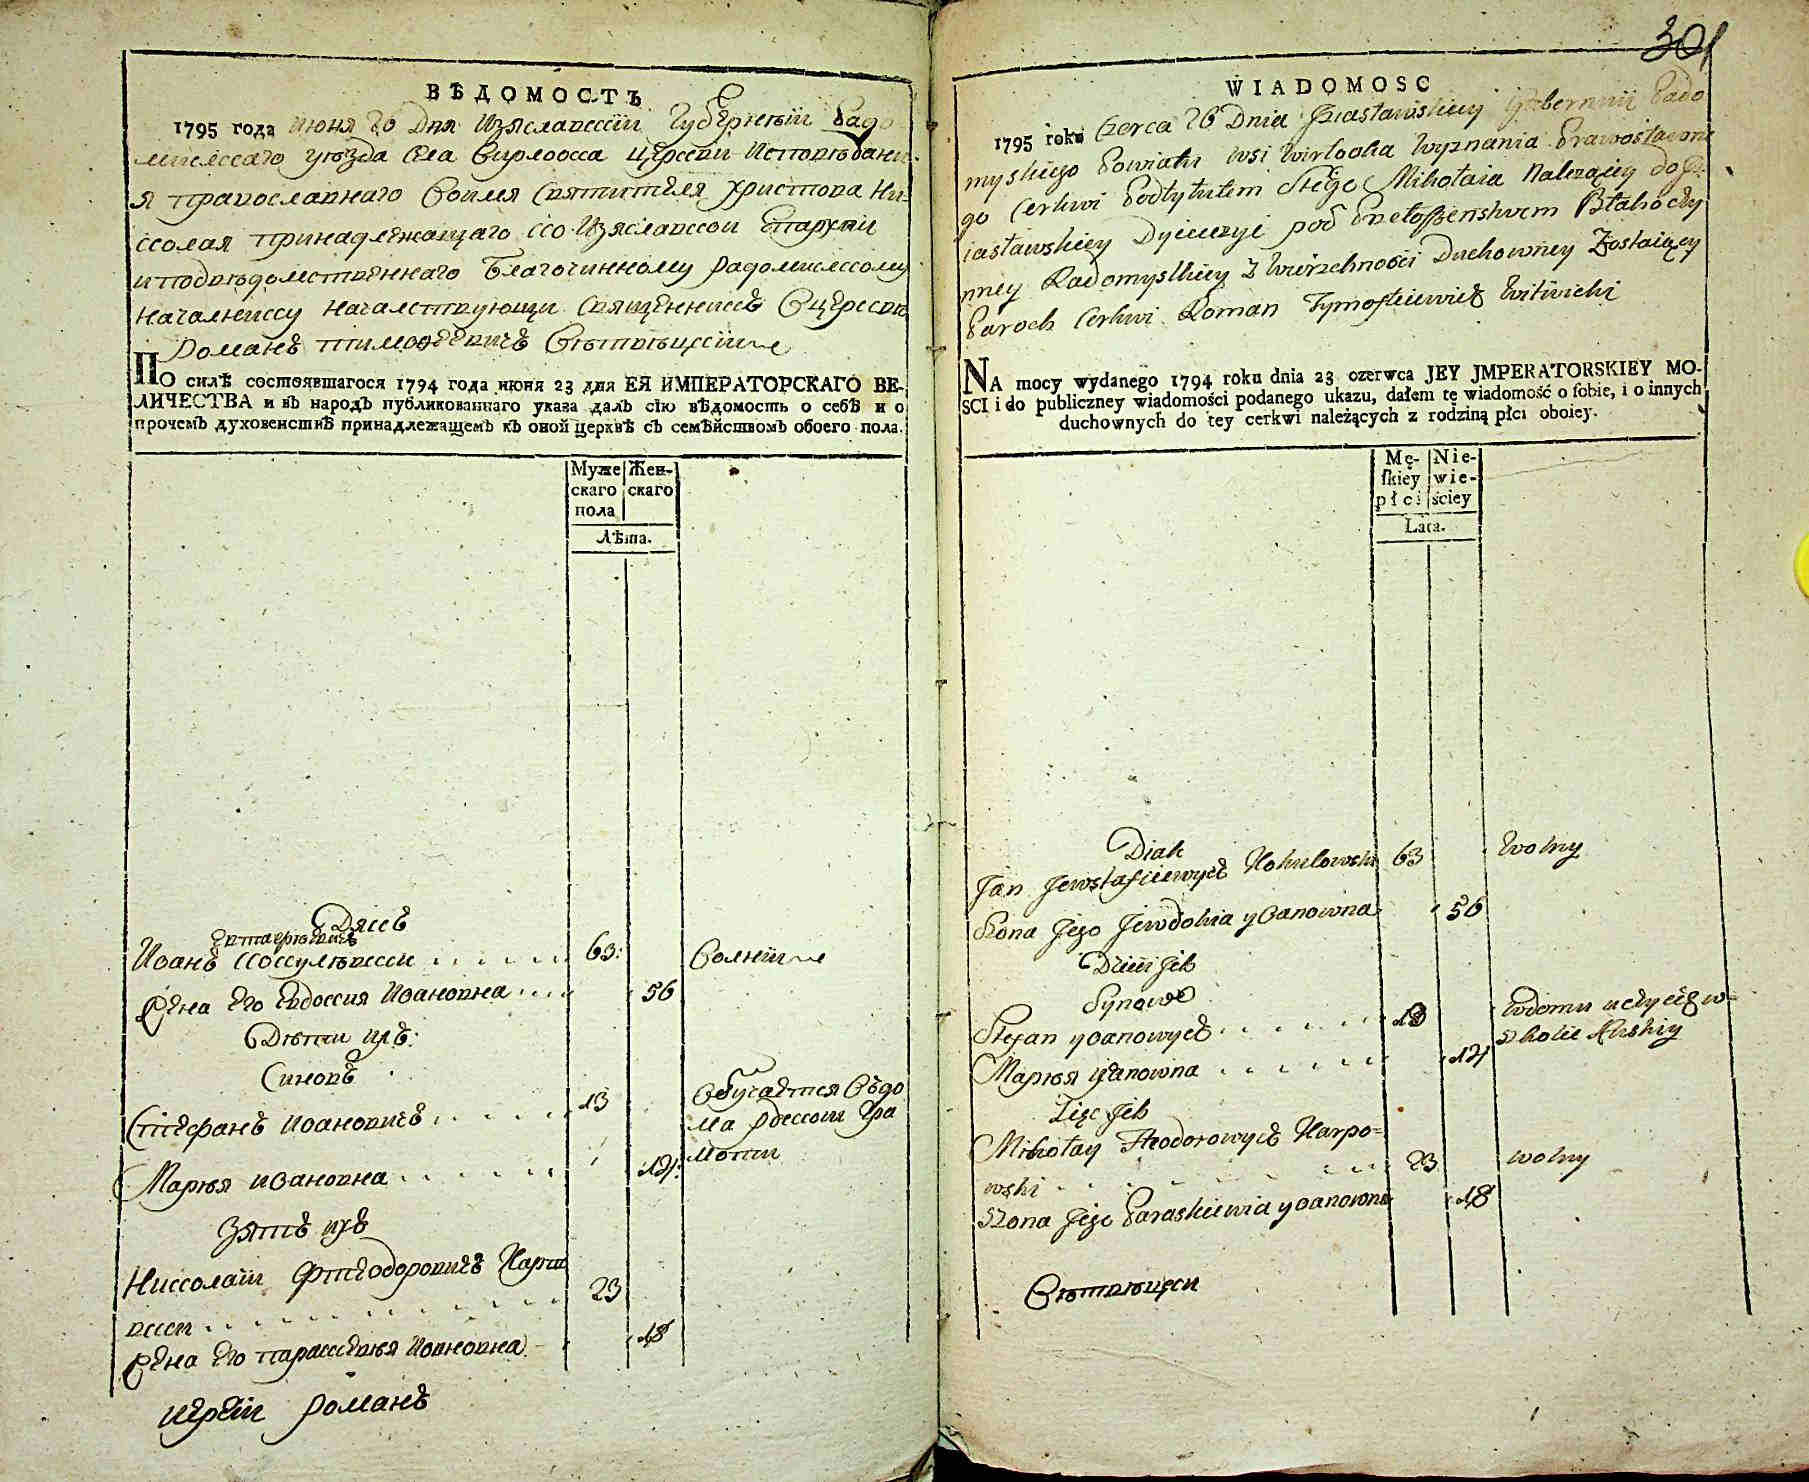 ВѢДОМОСТЬ
1795 года июня 26 Дня Изяславской Губернъии Радо
мислсскаго уезда Села Вирлоока Церкви Исповѣдани
я православнаго Воимя Святителя Христова Ни-
колая принадлежащаго ко Изяславской Епархіи
и подвѣдомственнаго Благочинному Радомислскому
Началнику Началствующи Священникъ Вцерквѣ
Романъ тимоѳеевичъ Вѣтвѣцкій
ПО силѣ состоявшагося 1794 года июня 23 дня ЕЯ ИМПЕРАТОРСКАГО ВЕ-
ЛИЧЕСТВА и въ народъ публикованнаго указа далъ сїю вѣдомость о себѣ и о
прочемъ духовенствѣ принадлежащемъ къ оной церквѣ съ семѣйствомъ обоего пола.
Муже скаго пола
Жен- скаго
Лѣта.
Дякъ
Евтафѣевичъ
Иоанъ Кокулѣвски 63: Волній
Жена Его Евдокия Иоановна 56
Дѣти ихъ:
Синовъ
Стефанъ Иоановичъ 13 Обучается Въдо
ма Рускои Гра
моти
Марѣя иоановна 14:
Зять ихъ
Николай Фтеодоровичъ Карпо
вски 23
Жена Его параскевѣя Иоановна 18
иерей романъ
301
WIADOMOSC
1795 roku Czerca 26 Dnia Iziasławskiey Gubernii Rado
myskiego Powiatu wsi Wirlooka Wyznania Prawosławne
go Cerkwi Podtytułem Stego Mikołaia Należącey do Iz-
iasławskiey Dyiecezyi pod Przełożenstwem Błahoczy
nney Radomyslkiey Zwierzchności Duchowney Zostaiący
Paroch Cerkwi Roman Tymofiiewicz Witwicki
NA mocy wydanego 1794 roku dnia 23 czerwca JEY JMPERATORSKIEY MO-
SCI i do publiczney wiadomości podanego ukazu, dałem tę wiadomość o sobie, i o innych
duchownych do tey cerkwi należących z rodziną płci oboiey.
Mę- skiey płci
Nie- wie- ściey
Lata.
Diak
Jan Jewstafiiewycz Kokulowski 63 wolny
Żona Jego Jewdokia yoanowna 56
Dzieci Jch
Synowe
Stefan yoanowycz 13 Wdomu uczycię w-
Szkolie Ruskiy
Марѣя yoanowna 14
Zięc Jch
Mikołay Fteodorowycz Karpo=
wski 23 wolny
Żona Jego Paraskiewia yoanowna 18
Вѣтвѣцки